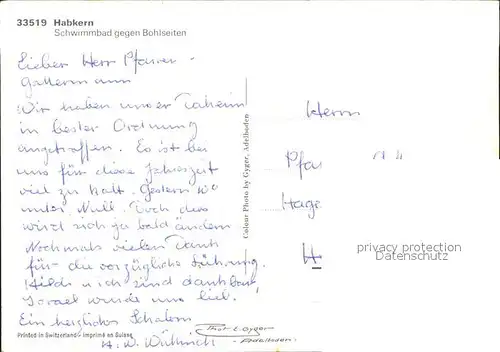 33519 Habkern
Schwimmbad gegen Bohlseiten
Lieber Herr Pfarrer
Gattermann
Wir haben unser Daheim
in bester Ordnung
angetroffen. Es ist bei
uns für diese Jahreszeit
viel zu kalt. Gestern 10°
unter Null. Doch dies
wird sich ja bald ändern
Nochmals vielen Dank
für die vorzügliche Führung.
Hilde u ich sind dankbar,
Israel wurde uns lieb.
Ein herzliches Schalom
H. W.
Printed in Switzerland - Imprimé en Suisse
Colour Photo by Gyger, Adelboden
Phot E. Gyger
Adelboden
Herrn
Pfar
Hage
H
privacy protection
Datenschutz